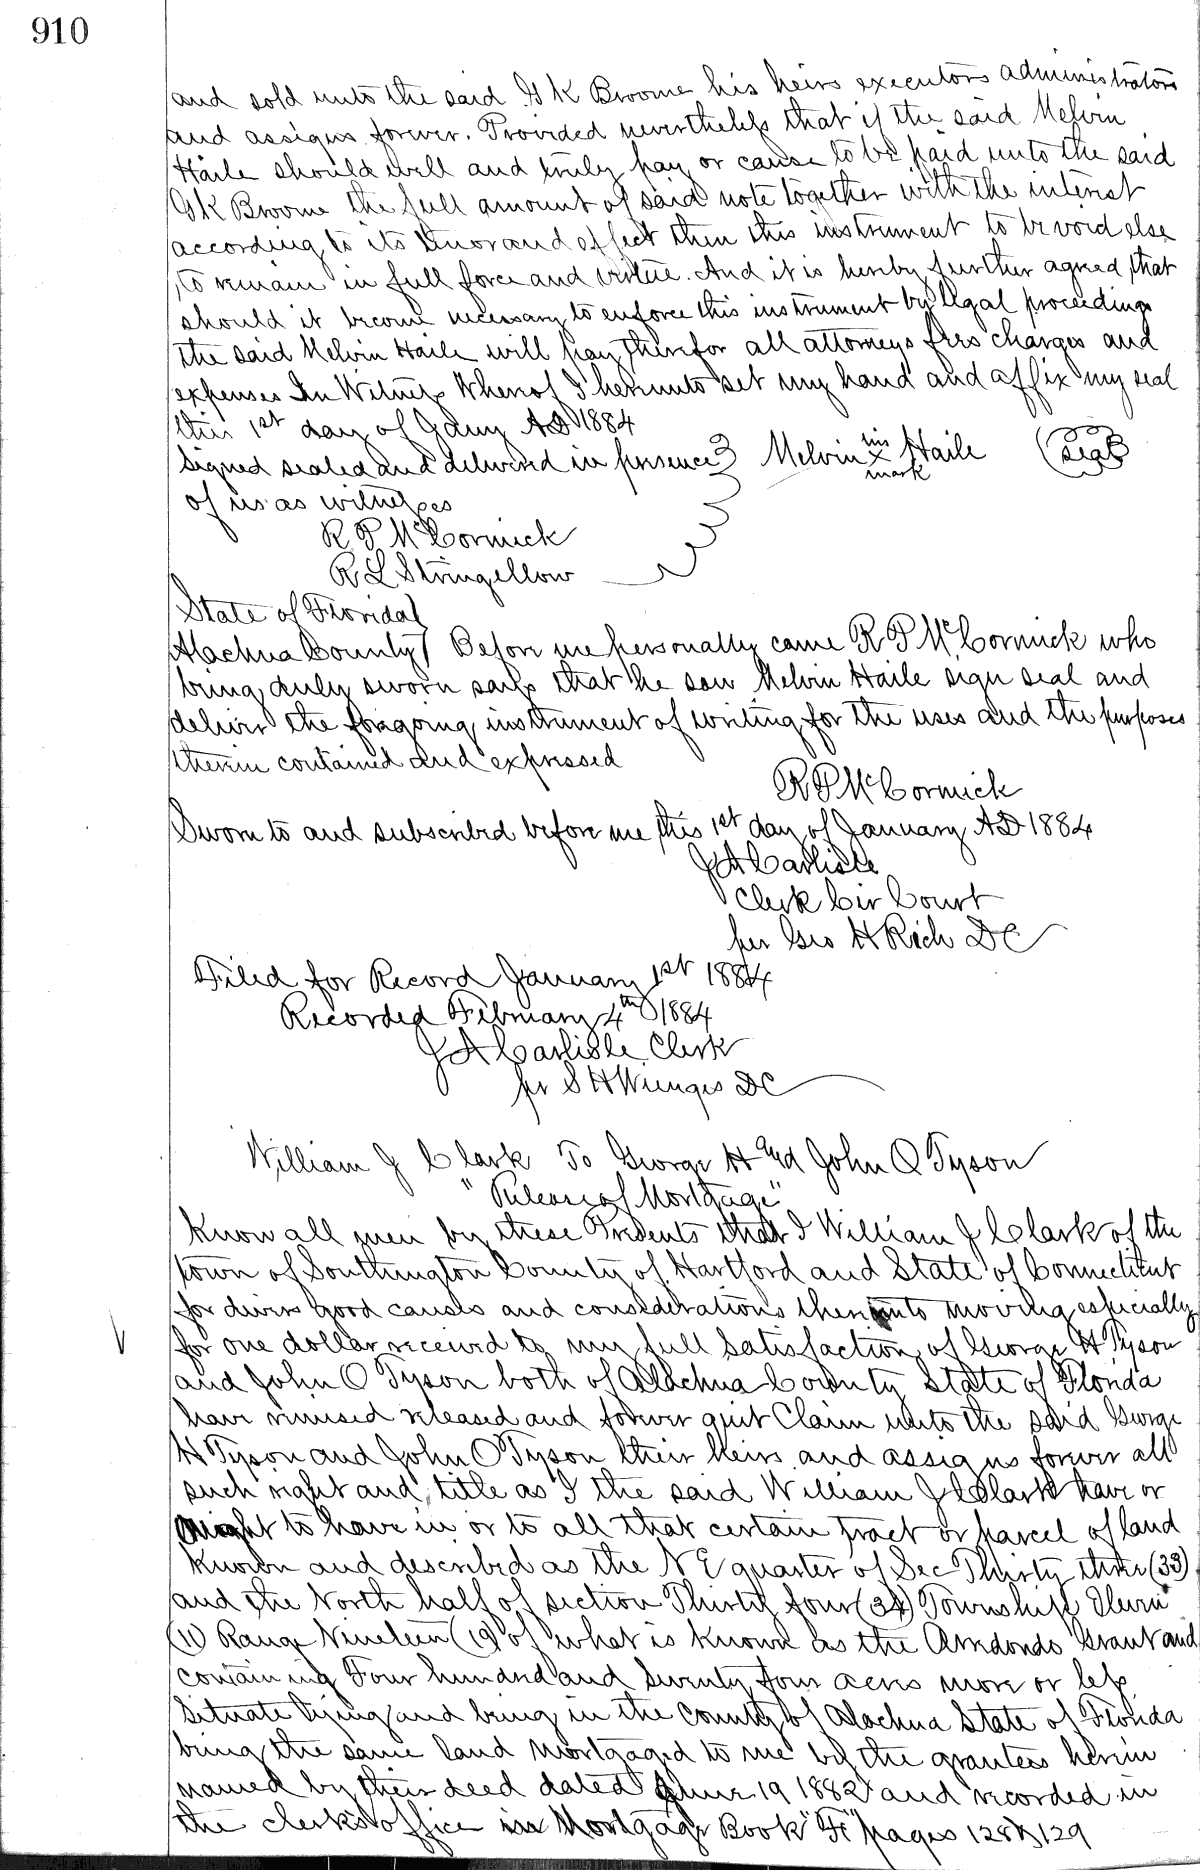 910
and sold unto the said G K Broome his heirs executors administrators
and assigns forever. Provided nevertheless that if the said Melvin
Haile should well and truly pay or cause to be paid unto the said
G K Broome the full amount of said note together with the interest
according to its tenor and effect then this instrument to be void else
to remain in full force and virtue. And it is hereby further agreed that
should it become necessary to enforce this instrument by legal proceedings
the said Melvin Haile will pay therefor all attorneys fees charges and
expenses In Witness Whereof I hereunto set my hand and affix my seal
this 1st day of Jany AD 1884
Signed sealed and delivered in presence Melvin his x mark Haile seal
of us as witnesses
R P McCormick
R L Stringellow
State of Florida
Alachua County Before me personally came R P McCormick who
being duly sworn says that he saw Melvin Haile sign seal and
deliver the foregoing instrument of writing for the uses and the purposes
therein contained and expressed
R P McCormick
Sworn to and subscribed before me this 1st day of January AD 1884
J A Carlisle
Clerk Cir Court
per Geo H Rich DC
Filed for Record January 1st 1884
Recorded February 4th 1884
J A Carlisle Clerk
per S H Wienges DC
William J Clark To George H and John O Tyson
"Release of Mortgage"
Know all men by these Presents that I William J Clark of the
town of Southington County of Hartford and State of Connecticut
for divers good causes and considerations thereunto moving especially
for one dollar received to my full satisfaction of George H Tyson
and John O Tyson both of Alachua County State of Florida
have remised released and forever quit Claim unto the said George
H Tyson and John O Tyson their heirs and assigns forever all
such right and title as I the said William J Clark have or
ought to have in or to all that certain tract or parcel of land
known and described as the N E quarter of Sec Thirty three (33)
and the North half of section Thirty four (34) Township Eleven
(11) Range Nineteen (19) of what is known as the Arredondo Grant and
containing Four hundred and Seventy four acres more or less
Situate lying and being in the County of Alachua State of Florida
being the same land mortgaged to me by the grantees herein
named by their deed dated June 19 1882 and recorded in
the clerks office in Mortgage Book "F" pages 128 & 129